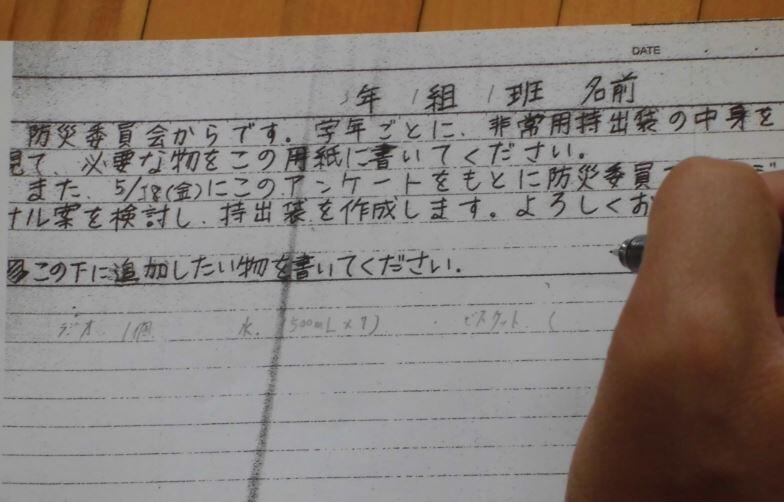 DATE
年 1組 1班 名前
防災委員会からです。学年ごとに、非常用持出袋の中身を
見て、必要な物をこの用紙に書いてください。
また、5/18(金)にこのアンケートをもとに防災委員
ナル案を検討し、持出袋を作成します。よろしくお
この下に追加したい物を書いてください。
ラジオ 1個 水 (500mL×7) ビスケット (